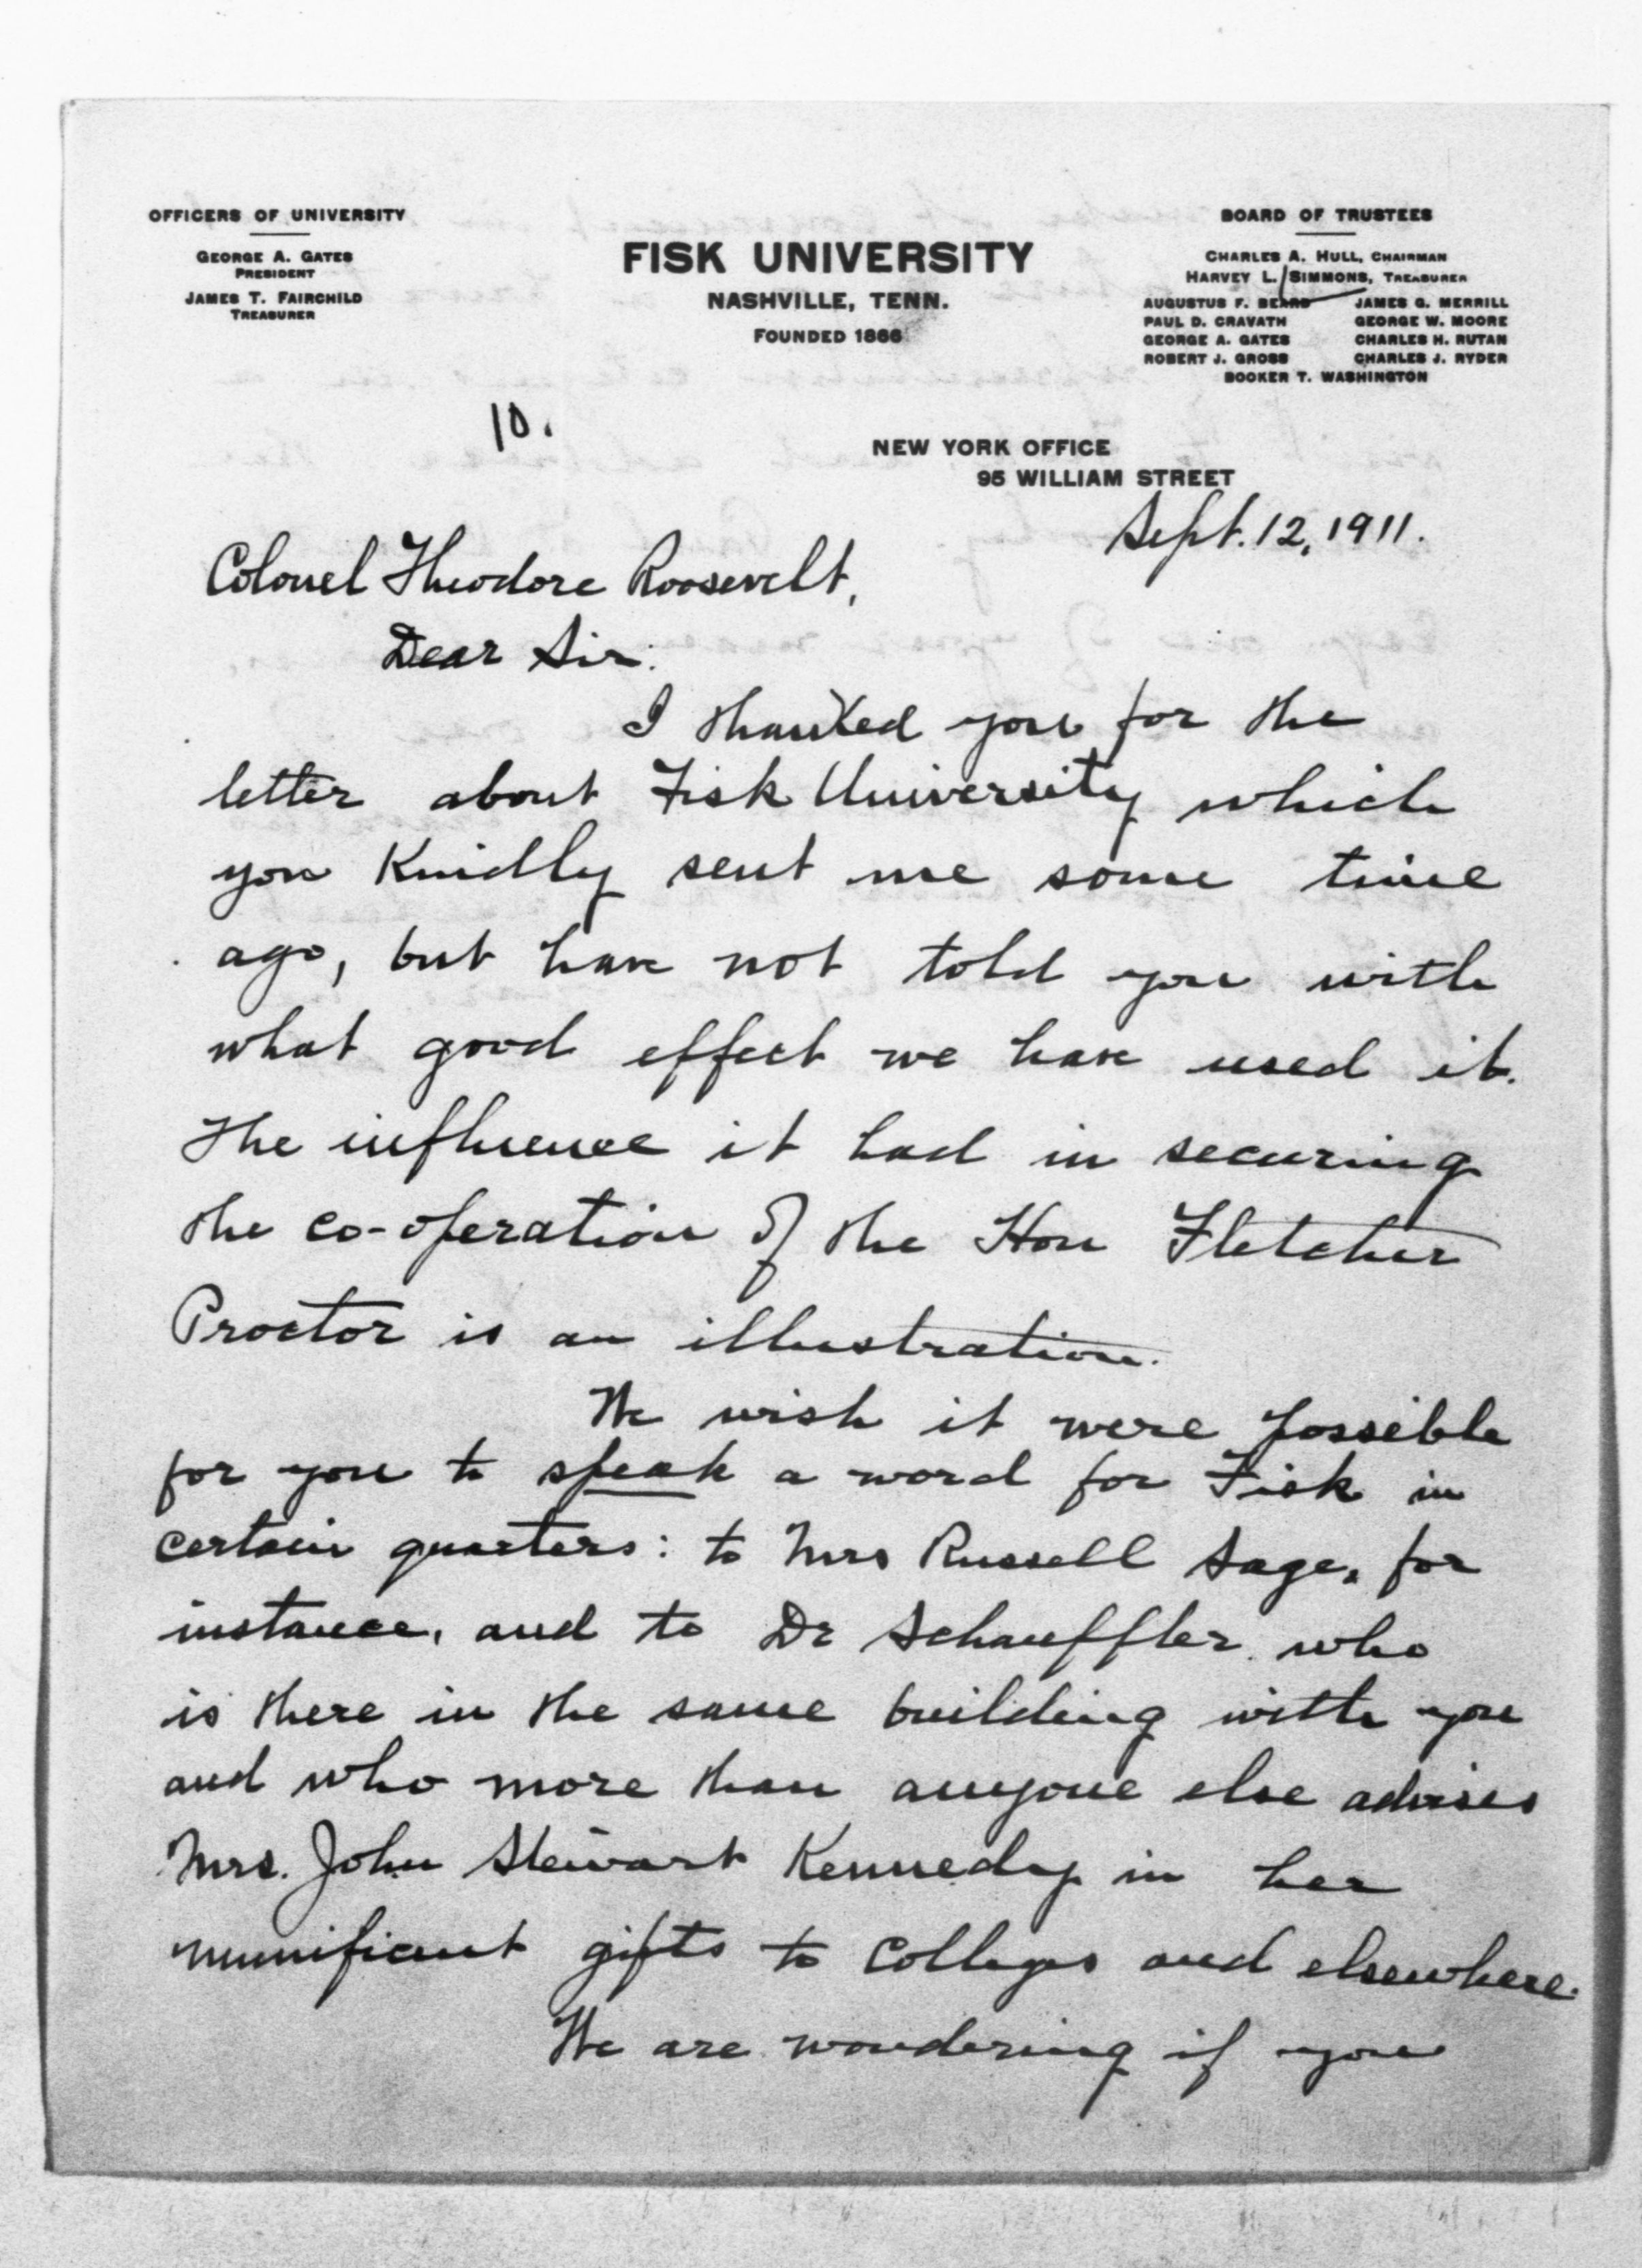 OFFICERS OF UNIVERSITY
GEORGE A. GATES
PRESIDENT
JAMES T. FAIRCHILD
TREASURER
FISK UNIVERSITY
NASHVILLE, TENN.
FOUNDED 1866
BOARD OF TRUSTEES
CHARLES A. HULL, CHAIRMAN
HARVEY L. SIMMONS, TREASURER
AUGUSTUS F. BEARD JAMES G. MERRILL
PAUL D. CRAVATH GEORGE W. MOORE
GEORGE A. GATES CHARLES H. RUTAN
ROBERT J. GROSS CHARLES J. RYDER
BOOKER T. WASHINGTON
10.
NEW YORK OFFICE
95 WILLIAM STREET
Sept. 12, 1911.
Colonel Theodore Roosevelt,
Dear Sir:
I thanked you for the
letter about Fisk University which
you kindly sent me some time
ago, but have not told you with
what good effect we have used it.
The influence it had in securing
the co-operation of the Hon Fletcher
Proctor is an illustration.
We wish it were possible
for you to speak a word for Fisk in
certain quarters: to Mrs Russell Sage, for
instance, and to Dr Schauffler who
is there in the same building with you
and who more than anyone else advises
Mrs. John Stewart Kennedy in her
munificent gifts to colleges and elsewhere.
We are wondering if you